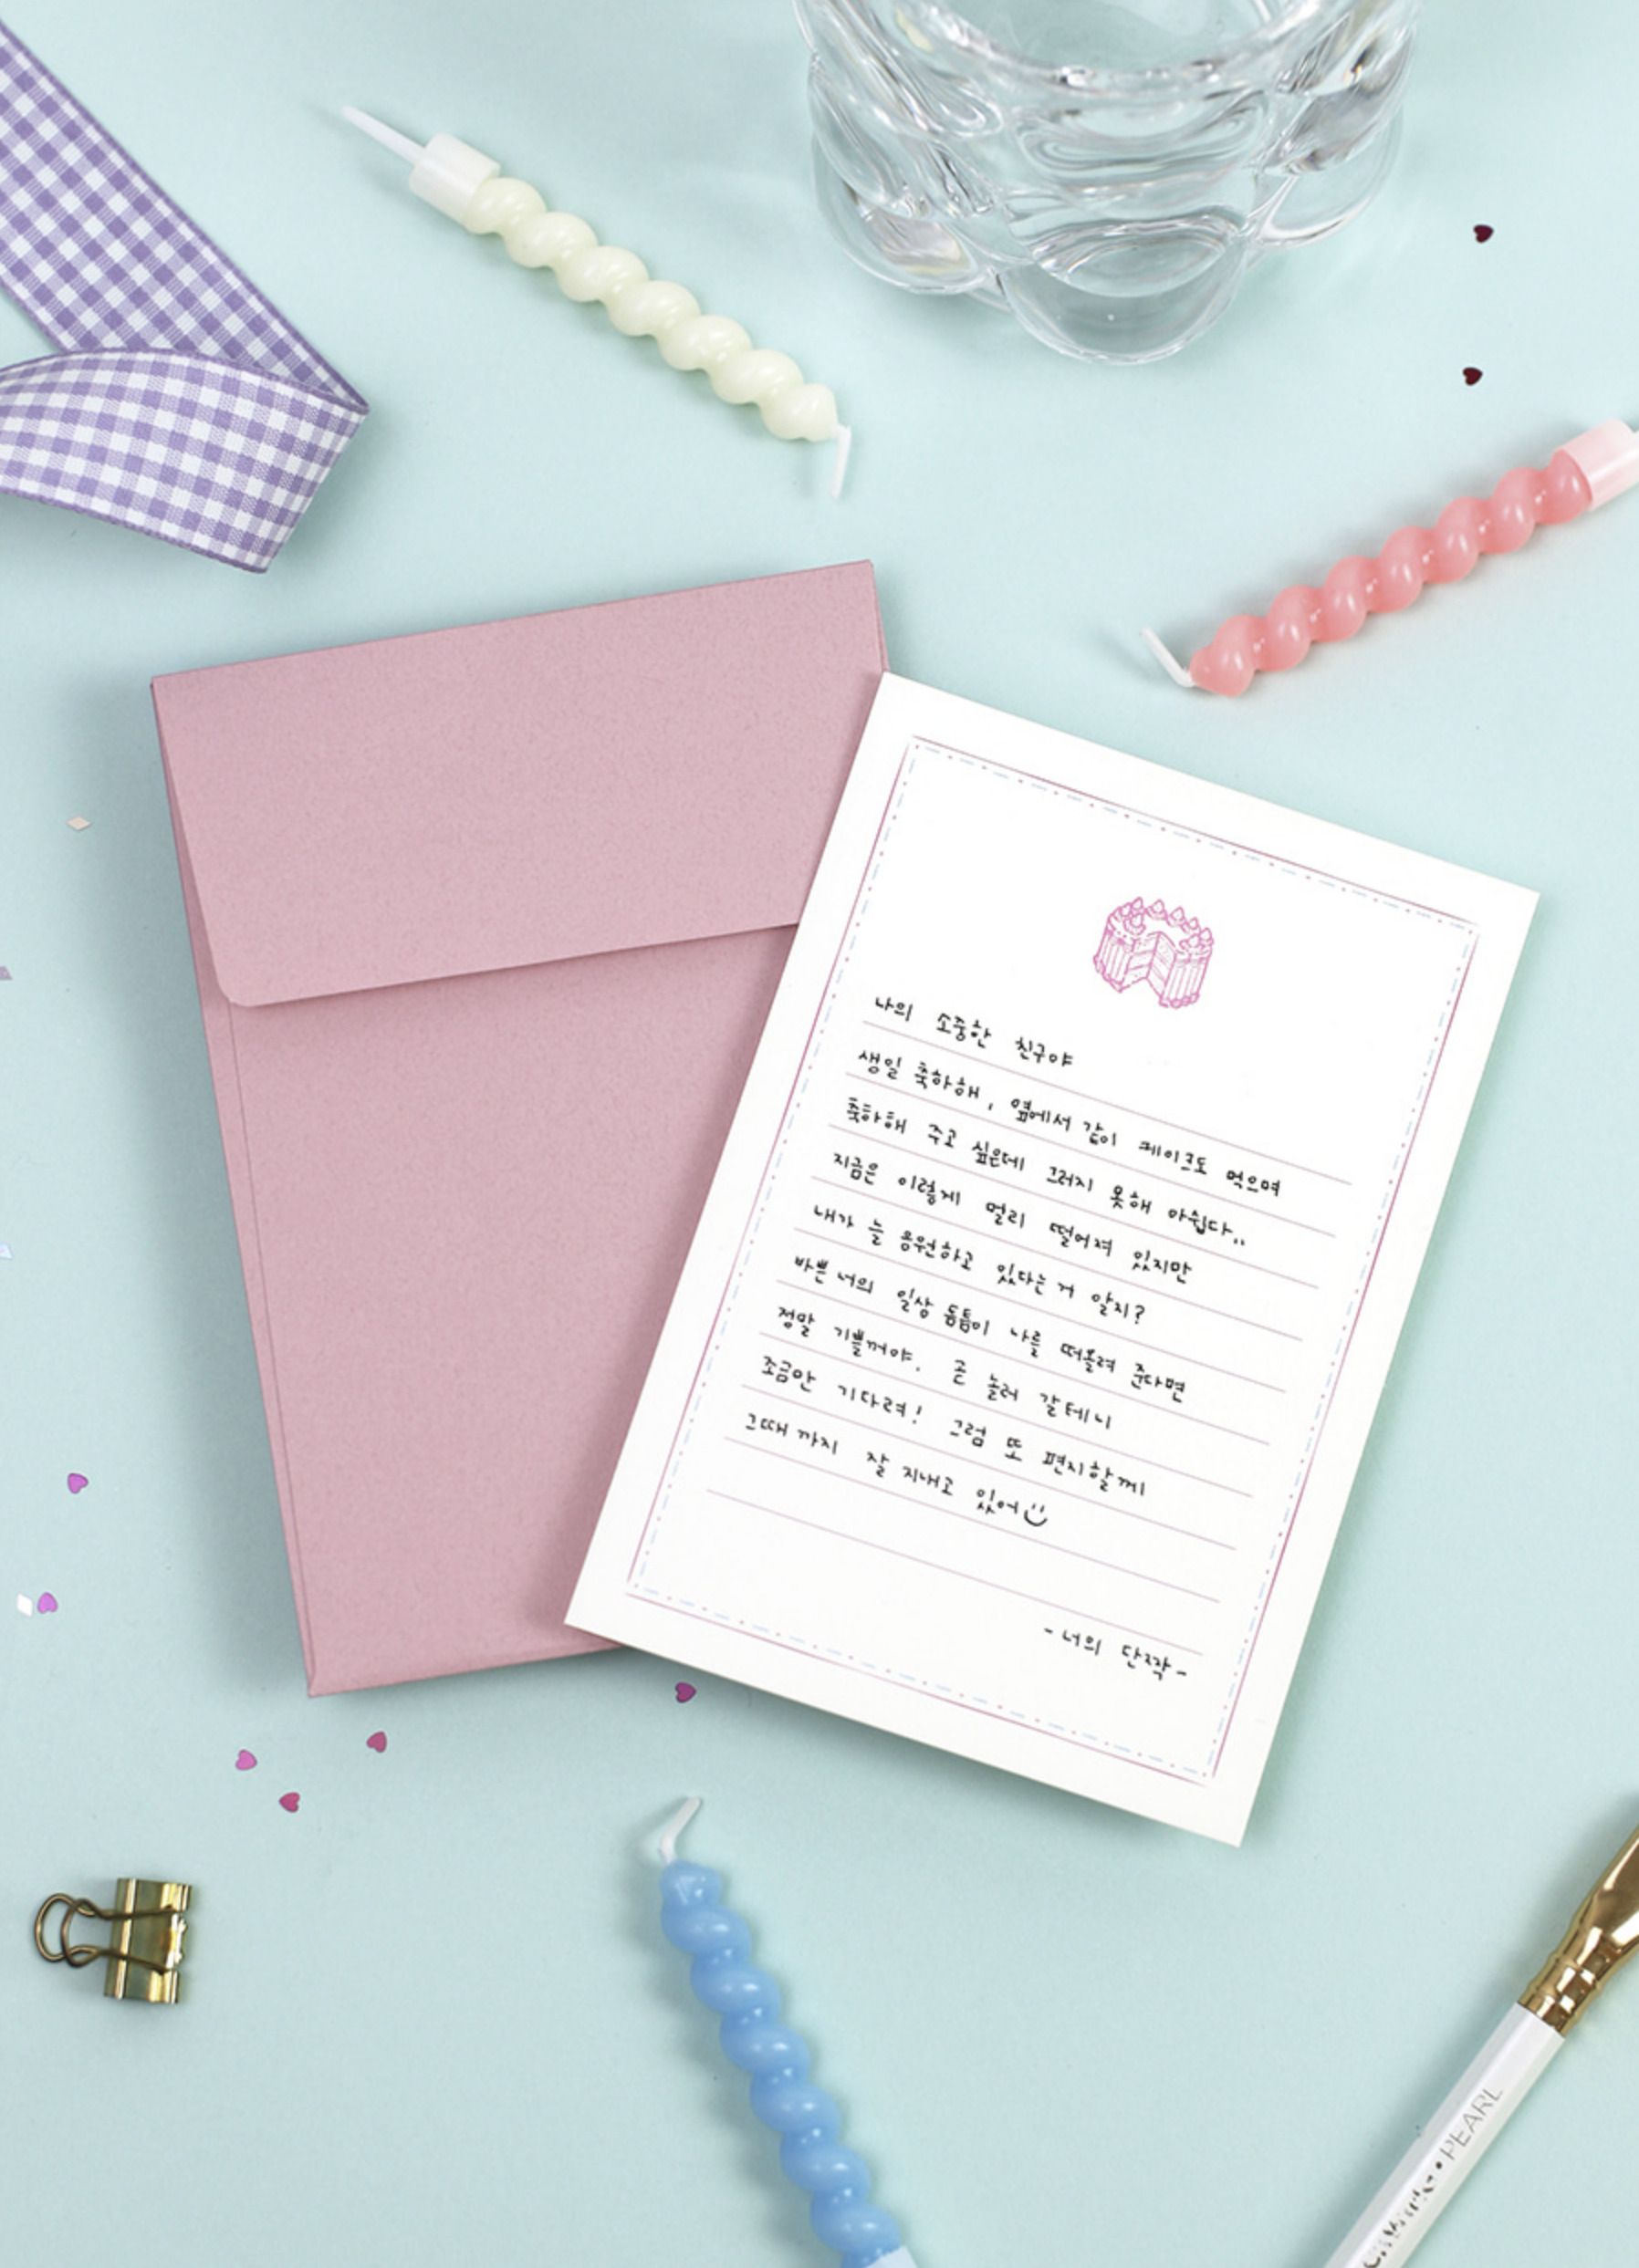 나의 소중한 친구야
생일 축하해, 옆에서 같이 케이크도 먹으며
축하해 주고 싶은데 그러지 못해 아쉽다..
지금은 이렇게 멀리 떨어져 있지만
내가 늘 응원하고 있다는 거 알지?
바쁜 너의 일상 틈틈이 나를 떠올려 준다면
정말 기쁠꺼야. 곧 놀러 갈테니
조금만 기다려! 그럼 또 편지할께
그때까지 잘 지내고 있어
-너의 단짝-
• PEARL